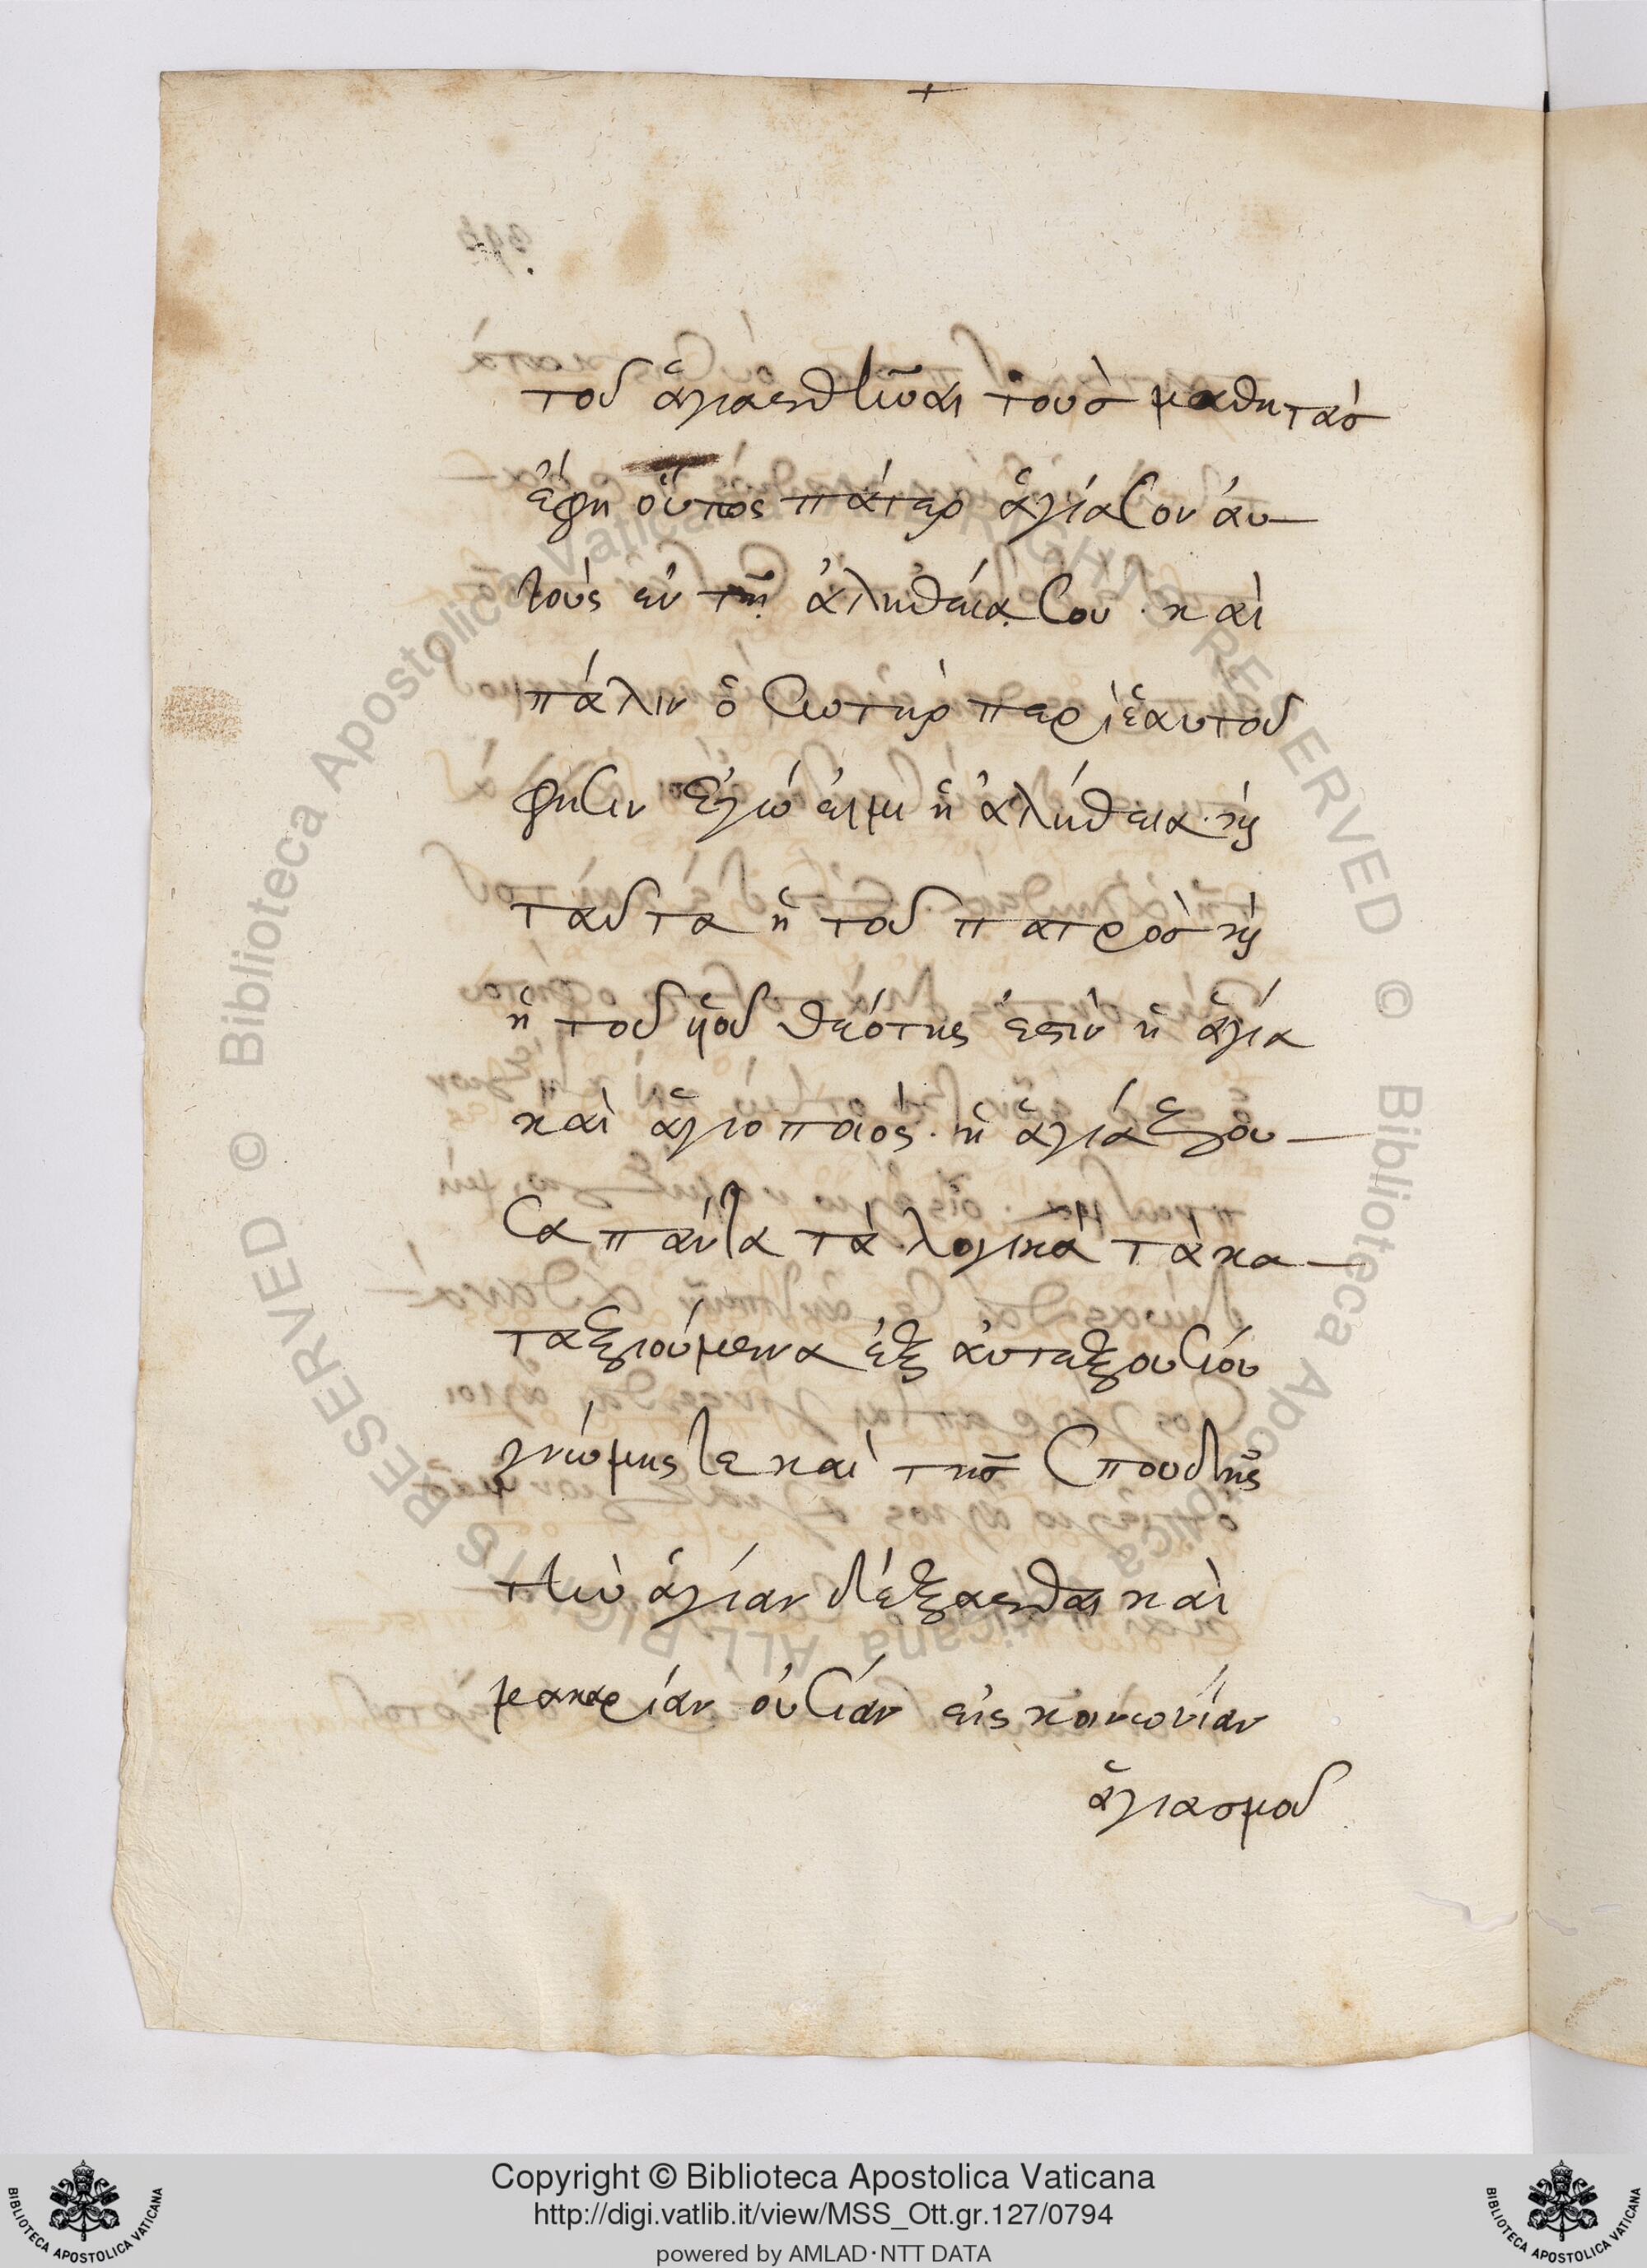 τοῦ ἁγιασθῆναι τοὺσ μαθητὰσ
ἔφη οὕτως πάτερ ἁγίασον ἀυ-
τοὺς ἐν τῆ ἀληθεία σου· καὶ
πάλιν ὁ σωτὴρ περὶ ἑαυτοῦ
φησιν Ἐγώ ἐιμι ἡ ἀλήθεια· κỳ
ταῦτα ἡ τοῦ πατρὸσ κỳ
ἡ τοῦ υἱοῦ θεότης ἐστὶν ἡ ἁγία
καὶ ἁγιοποιός· ἡ ἁγιάζου-
σα πάντα τὰ λογικὰ τὰ κα-
ταξιούμενα ἐξ ἀυτεξουσίου
γνώμης τε καὶ τῆσ σπουδῆς
τὴν ἁγίαν δέξασθαι καὶ
μακαρίαν ὀυσίαν εἰς κοινωνίαν
ἁγιασμοῦ
© Biblioteca Apostolica Vaticana ALL RIGHTS RESERVED © Biblioteca Apostolica Vaticana ALL RIGHTS RESERVED
Copyright © Biblioteca Apostolica Vaticana
http://digi.vatlib.it/view/MSS_Ott.gr.127/0794
powered by AMLAD·NTT DATA
BIBLIOTECA APOSTOLICA VATICANA
BIBLIOTECA APOSTOLICA VATICANA